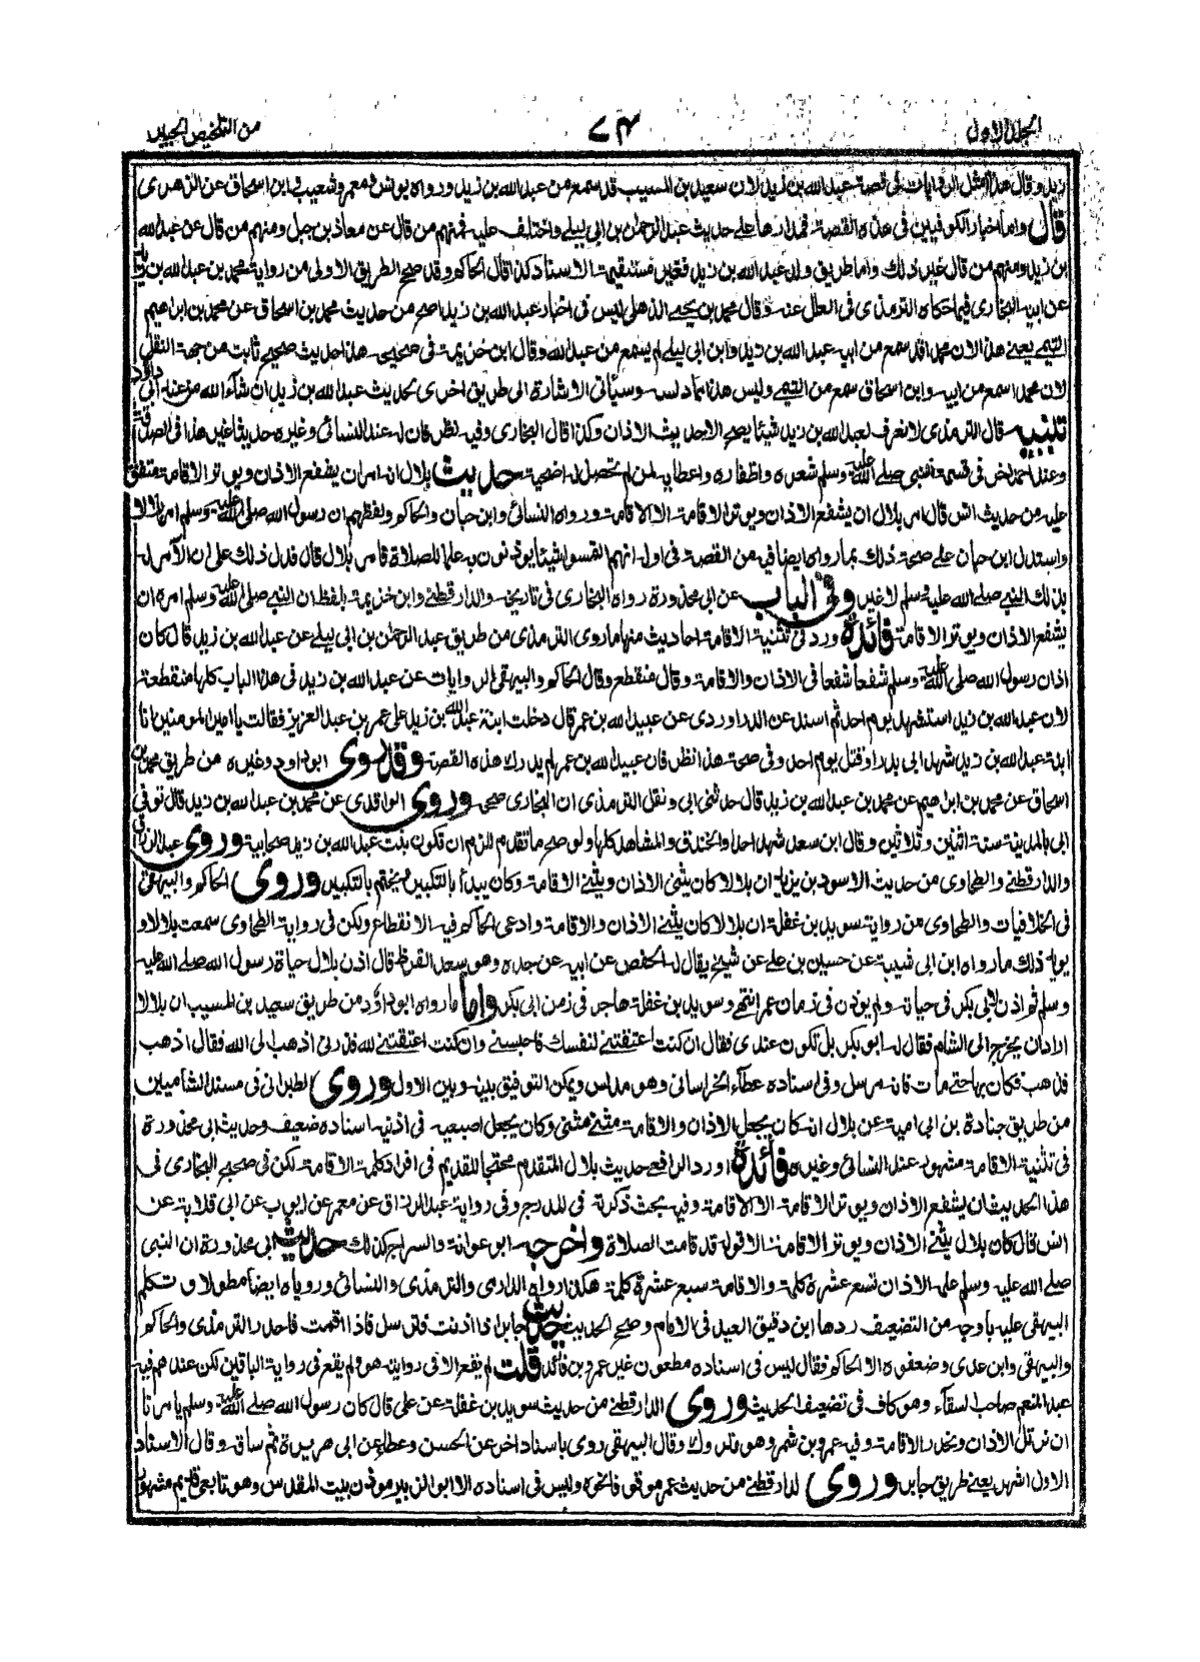 الجلد الاول
٧٤
من التلخيص الحبير
زيد وقال هذا امثل الروايات في قصة عبد الله بن زيد لان سعيد بن المسيب قد سمع من عبد الله بن زيد ورواه يونس ومعمر وشعيب وابن اسحاق عن الزهري
قال واما اخبار الكوفيين في هذه القصة فمدارها على حديث عبد الرحمن بن ابي ليلى واختلف عليه فمنهم من قال عن معاذ بن جبل ومنهم من قال عن عبد الله
ابن زيد ومنهم من قال غير ذلك واما طريق ولد عبد الله بن زيد فغير مستقيمة الاسناد كذا قال الحاكم وقد صحح الطريق الاولى من رواية محمد بن عبد الله بن زيد
عن ابيه البخاري فيما حكاه الترمذي في العلل عنه وقال محمد بن يحيى الذهلي ليس في اخبار عبد الله بن زيد اصح من حديث محمد بن اسحاق عن محمد بن ابراهيم
التيمي يعني هذا لان محمدا قد سمع من ابيه عبد الله بن زيد وابن ابي ليلى لم يسمع من عبد الله وقال ابن خزيمة في صحيحه هذا حديث صحيح ثابت من جهة النقل
لان محمدا سمع من ابيه وابن اسحاق سمع من التيمي وليس هذا مما دلسه وسيأتي الاشارة الى طريق اخرى لحديث عبد الله بن زيد ان شاء الله من عند ابي داود
تنبيه قال الترمذي لا نعرف لعبد الله بن زيد شيئا يصح الا حديث الاذان وكذا قال البخاري وفيه نظر فان له عند النسائي وغيره حديثا غير هذا في الصدقة
وعند احمد اخر في قسمة النبي صلى الله عليه وسلم شعره واظفاره واعطائه لمن لم تحصل له اضحية حديث بلال انه امر ان يشفع الاذان ويوتر الاقامة متفق
عليه من حديث انس قال امر بلال ان يشفع الاذان ويوتر الاقامة الا الاقامة ورواه النسائي وابن حبان والحاكم ولفظهم ان رسول الله صلى الله عليه وسلم امر بلالا
واستدل ابن حبان على صحة ذلك بما رواه ايضا فيه من القصة في اوله انهم التمسوا شيئا يؤذنون به علما للصلاة فامر بلال قال فدل ذلك على ان الآمر له
بذلك النبي صلى الله عليه وسلم لا غير وفي الباب عن ابي محذورة رواه البخاري في تاريخه والدارقطني وابن خزيمة بلفظ ان النبي صلى الله عليه وسلم امره ان
يشفع الاذان ويوتر الاقامة فائدة ورد في تثنية الاقامة احاديث منها ما روى الترمذي من طريق عبد الرحمن بن ابي ليلى عن عبد الله بن زيد قال كان
اذان رسول الله صلى الله عليه وسلم شفعا شفعا في الاذان والاقامة وقال منقطع وقال الحاكم والبيهقي الروايات عن عبد الله بن زيد في هذا الباب كلها منقطعة
لان عبد الله بن زيد استشهد يوم احد ثم اسند عن الدراوردي عن عبيد الله بن عمر قال دخلت ابنة عبد الله بن زيد على عمر بن عبد العزيز فقالت يا امير المومنين انا
ابنة عبد الله بن زيد شهد ابي بدرا وقتل يوم احد وفي صحة هذا نظر فان عبيد الله بن عمر لم يدرك هذه القصة وقد روى ابو داود وغيره من طريق محمد بن
اسحاق عن محمد بن ابراهيم عن محمد بن عبد الله بن زيد قال حدثني ابي ونقل الترمذي ان البخاري صححه وروى الواقدي عن محمد بن عبد الله بن زيد قال توفي
ابي بالمدينة سنة اثنين وثلاثين وقال ابن سعد شهد احدا والخندق والمشاهد كلها ولو صح ما تقدم للزم ان تكون بنت عبد الله بن زيد صحابية وروى عبد الرزاق
والدارقطني والطحاوي من حديث الاسود بن يزيد ان بلالا كان يثنى الاذان ويثنى الاقامة وكان يبدأ بالتكبير ويختم بالتكبير وروى الحاكم والبيهقي
في الخلافيات والطحاوي من رواية سويد بن غفلة ان بلالا كان يثنى الاذان والاقامة وادعى الحاكم فيه الانقطاع ولكن في رواية الطحاوي سمعت بلالا و
يؤيد ذلك ما رواه ابن ابي شيبة عن حسين بن علي عن شيخ يقال له الحفص عن ابيه عن جده وهو سعد القرظ قال اذن بلال حياة رسول الله صلى الله عليه
وسلم ثم اذن لابي بكر في حياته ولم يؤذن في زمان عمر انتهى وسويد بن غفلة هاجر في زمن ابي بكر واما ما رواه ابو داود من طريق سعيد بن المسيب ان بلالا
اراد ان يخرج الى الشام فقال له ابو بكر بل تكون عندي فقال ان كنت اعتقتني لنفسك فاحبسني وان كنت اعتقتني لله فذرني اذهب الى الله فقال اذهب
فذهب فكان بها حتى مات فانه مرسل وفي اسناده عطاء الخراساني وهو مدلس ويمكن التوفيق بينه وبين الاول وروى الطبراني في مسند الشاميين
من طريق جنادة بن ابي امية عن بلال انه كان يجعل الاذان والاقامة مثنى مثنى وكان يجعل اصبعيه في اذنيه اسناده ضعيف وحديث ابي محذورة
في تثنية الاقامة مشهور عند النسائي وغيره فائدة اورد الرافعي حديث بلال المتقدم محتجا للقديم في افراد كلمة الاقامة لكن في صحيح البخاري في
هذا الحديث ان يشفع الاذان ويوتر الاقامة الا الاقامة وفيه بحث ذكرته في المدرج وفي رواية عبد الرزاق عن معمر عن ايوب عن ابي قلابة عن
انس قال كان بلال يثني الاذان ويوتر الاقامة الا قوله قد قامت الصلاة واخرجه ابو عوانة والسراج كذلك حديث ابي محذورة ان النبي
صلى الله عليه وسلم علمه الاذان تسع عشرة كلمة والاقامة سبع عشرة كلمة هكذا رواه الدارمي والترمذي والنسائي وروياه ايضا مطولا وتكلم
البيهقي عليه باوجه من التضعيف ردها ابن دقيق العيد في الامام وصحح الحديث حديث جابر اذا اذنت فترسل فاذا اقمت فاحدر الترمذي والحاكم
والبيهقي وابن عدي وضعفوه الا الحاكم فقال ليس في اسناده مطعون غير عمرو بن فائد قلت لم يقع الا في روايته هو ولم يقع في رواية الباقين لكن عندهم فيه
عبد المنعم صاحب السقاء وهو كاف في تضعيف الحديث وروى الدارقطني من حديث سويد بن غفلة عن علي قال كان رسول الله صلى الله عليه وسلم يامرنا
ان نرتل الاذان ونحدر الاقامة وفيه عمرو بن شمر وهو متروك وقال البيهقي روى باسناد اخر عن الحسن وعطاء عن ابي هريرة ثم ساقه وقال الاسناد
الاول اشهر يعني طريق جابر وروى الدارقطني من حديث عمر موقوفا نحوه وليس في اسناده الا ابو الزبير موذن بيت المقدس وهو تابعي قديم مشهور